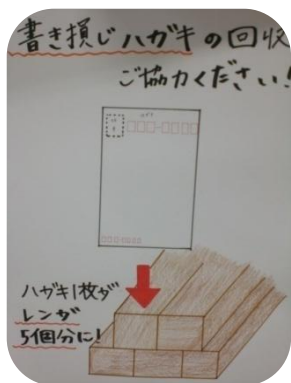 書き損じハガキの回収
ご協力ください!
ハガキ1枚が
レンガ
5個分に!